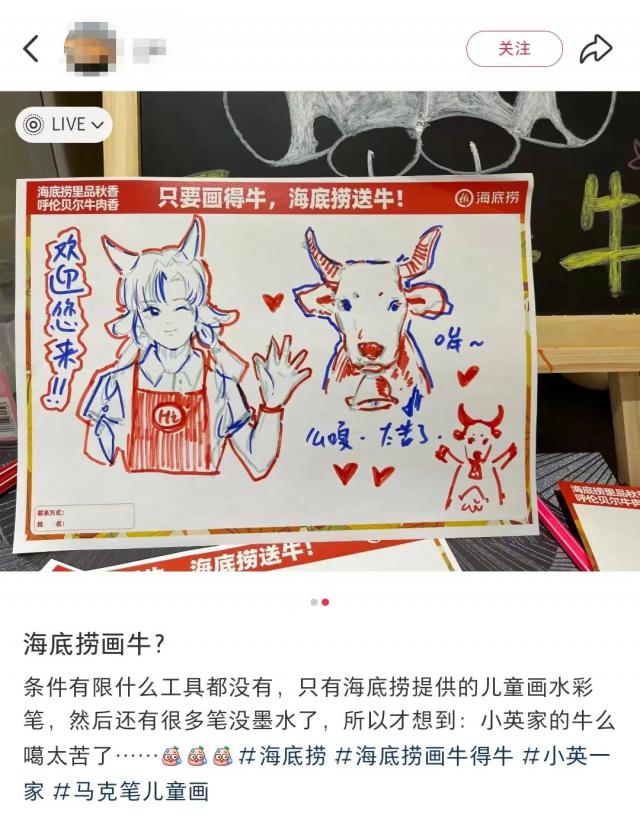 关注
LIVE
海底捞里品秋香
呼伦贝尔牛肉香
只要画得牛，海底捞送牛！
Hi 海底捞
牛
欢迎您来!!
Hi
哞~
么嘎.太苦了.
联系方式：
姓 名：
海底捞里品秋香
呼伦贝尔牛肉香
海底捞送牛！
海底捞画牛？
条件有限什么工具都没有，只有海底捞提供的儿童画水彩
笔，然后还有很多笔没墨水了，所以才想到：小英家的牛么
噶太苦了……#海底捞 #海底捞画牛得牛 #小英一
家 #马克笔儿童画